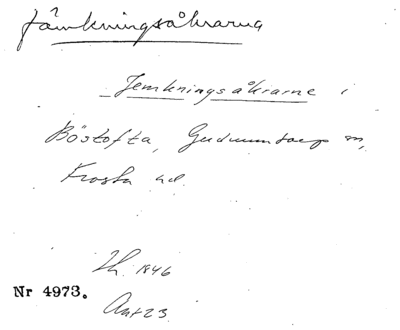 Jämkningsåkrarna
Jemkningsåkrarne i
Böstofta, Gudmuntorp sn,
Frosta hd.
Lh. 1846
Nr 4973.
Akt 23